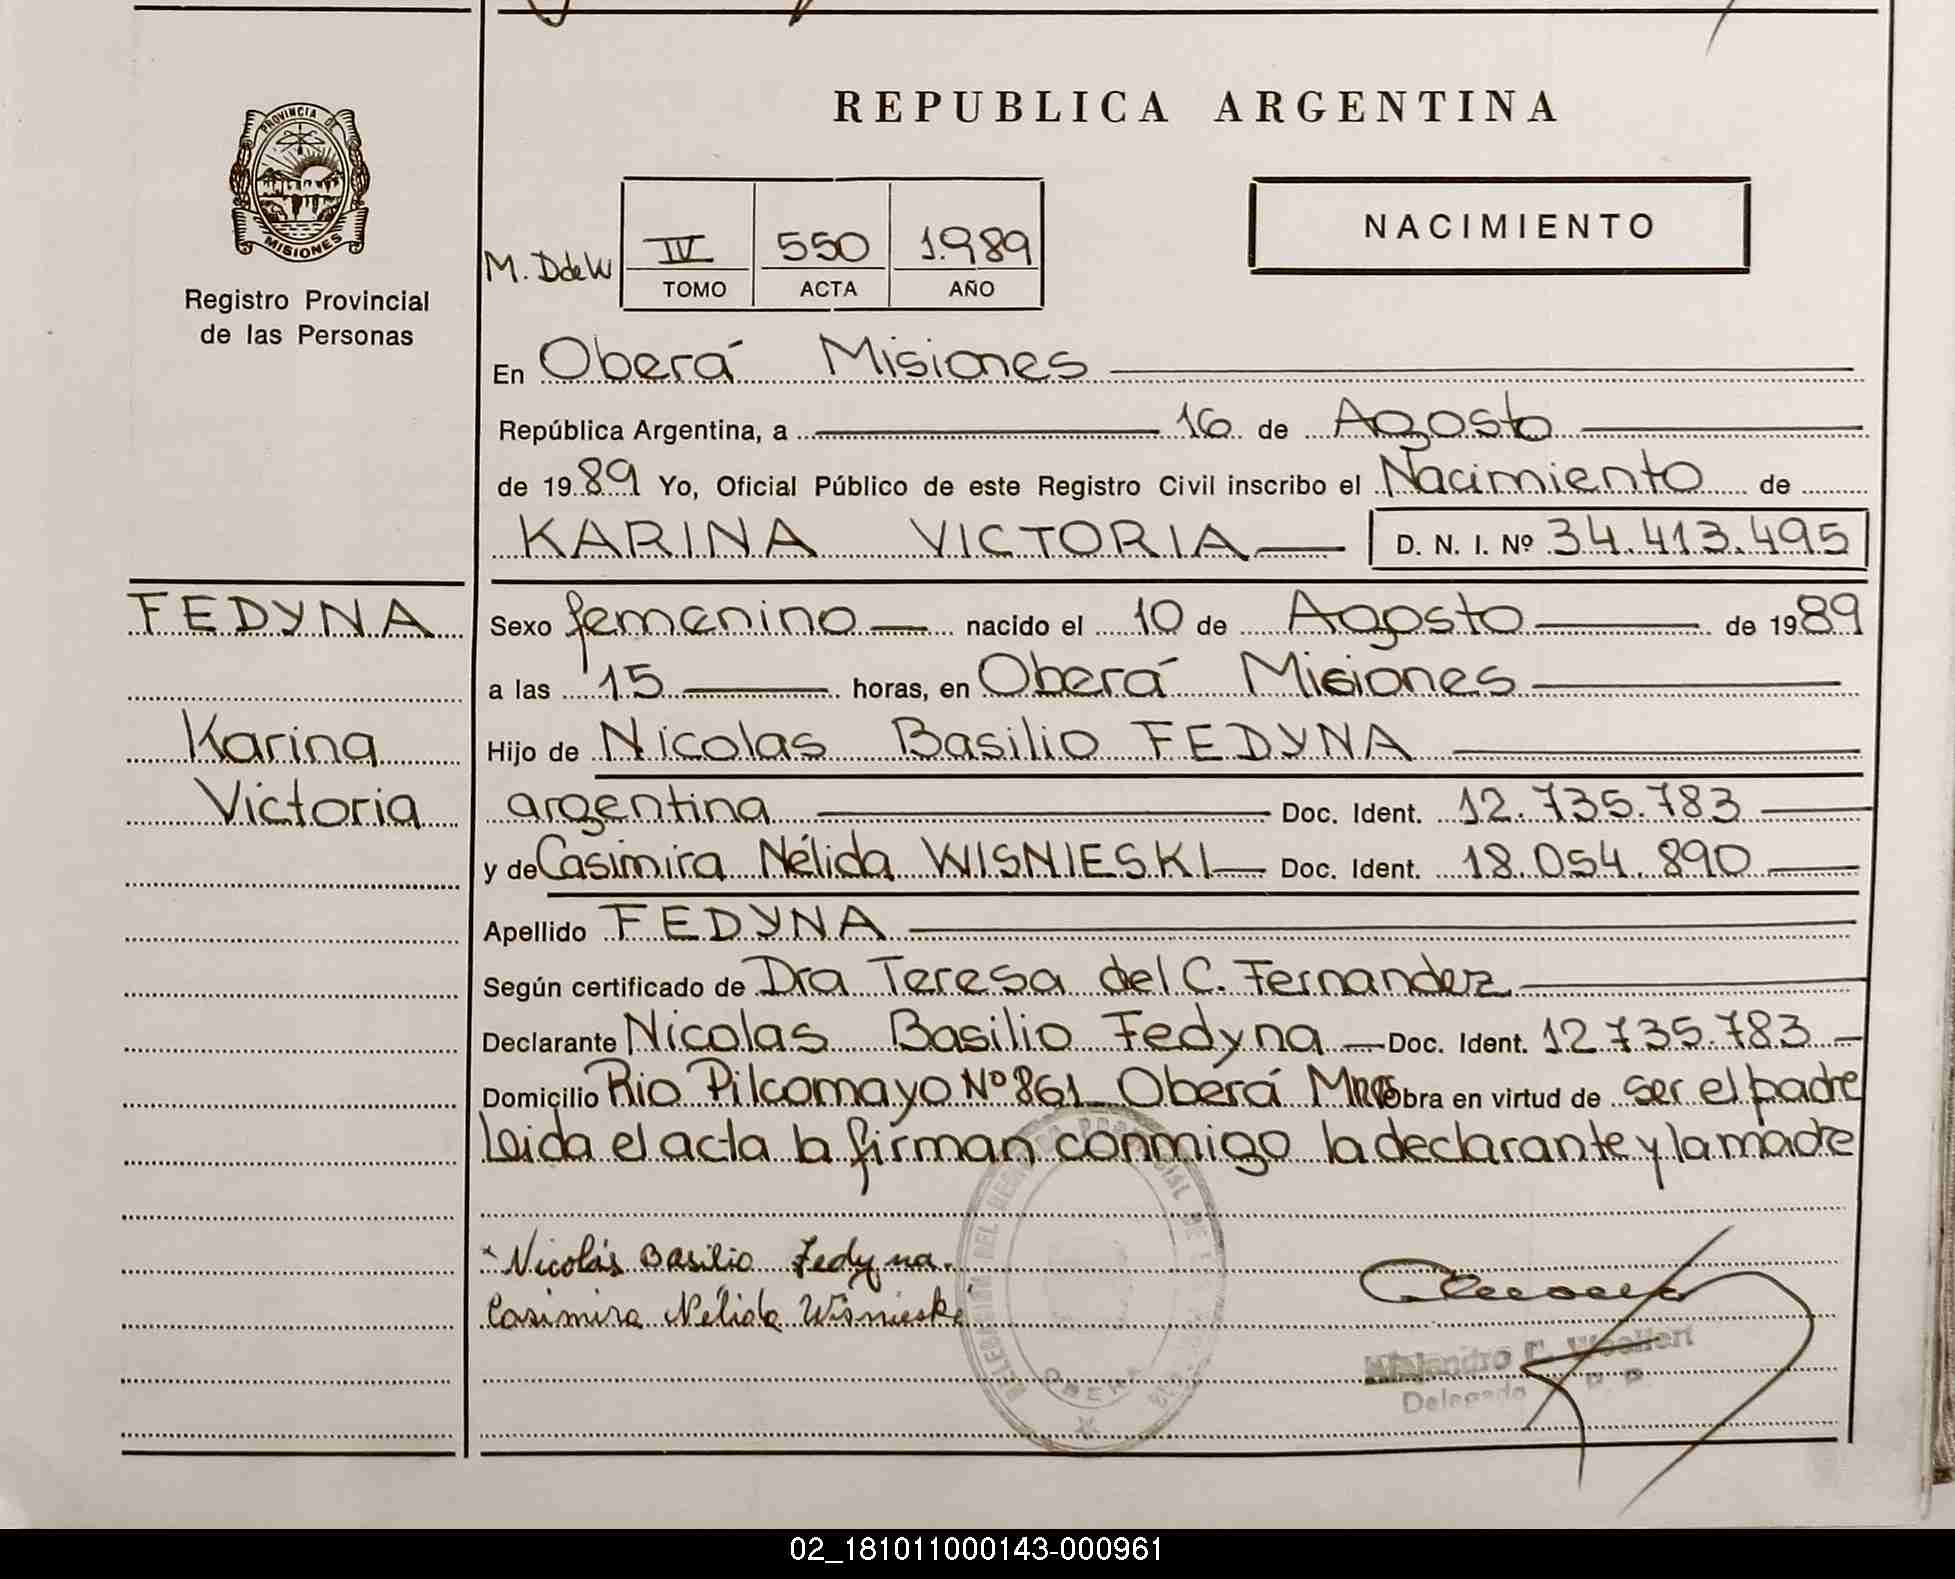 PROVINCIA DE
MISIONES
Registro Provincial
de las Personas
REPUBLICA ARGENTINA
NACIMIENTO
M. DdeW IV 550 1.989
TOMO ACTA AÑO
En Oberá Misiones
República Argentina, a 16 de Agosto
de 1989 Yo, Oficial Público de este Registro Civil inscribo el Nacimiento de
KARINA VICTORIA D. N. I. Nº 34.413.495
FEDYNA
Karina
Victoria
Sexo femenino nacido el 10 de Agosto de 1989
a las 15 horas, en Oberá Misiones
Hijo de Nicolas Basilio FEDYNA
argentina Doc. Ident. 12.735.783
y de Casimira Nélida WISNIESKI Doc. Ident. 18.054.890
Apellido FEDYNA
Según certificado de Dra Teresa del C. Fernandez
Declarante Nicolas Basilio Fedyna Doc. Ident. 12.735.783
Domicilio Rio Pilcomayo Nº 861 Oberá Mnes Obra en virtud de ser el padre
Leida el acta la firman conmigo la declarante y la madre
Nicolás Basilio Fedyna.
Casimira Nélida Wisnieski
DELEGACION DEL REGISTRO PROVINCIAL DE LAS
OBERA
Delegado R. P.
02_181011000143-000961